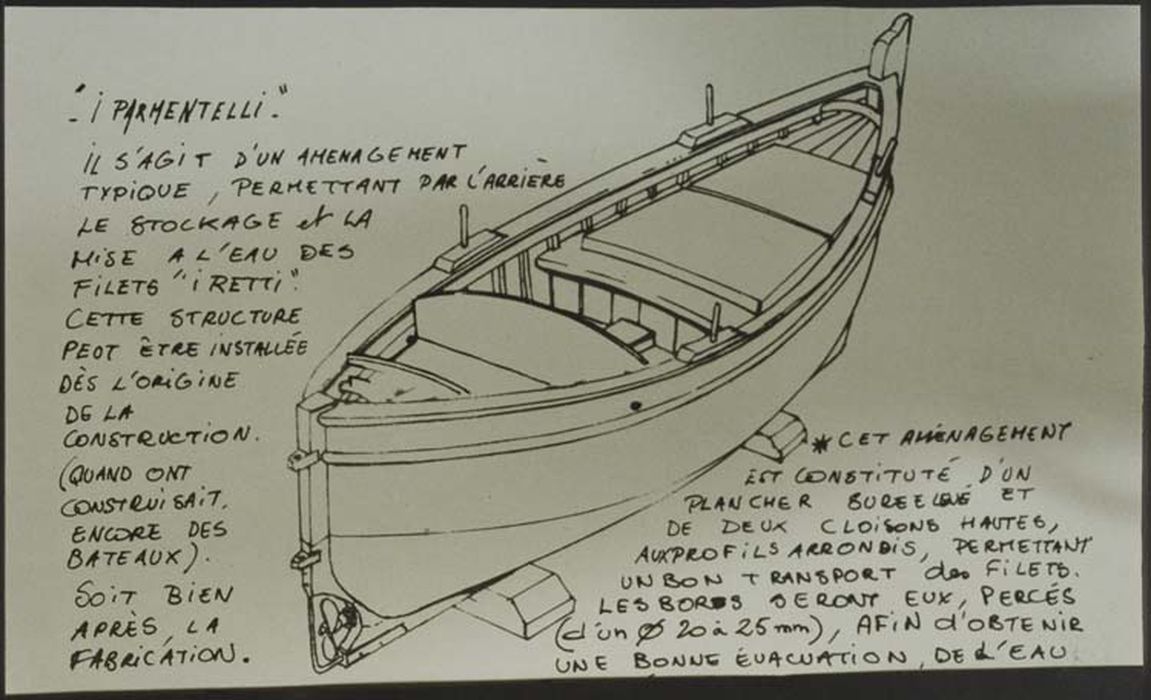 - "I PARMENTELLI". -
IL S'AGIT D'UN AMENAGEMENT
TYPIQUE, PERMETTANT PAR L'ARRIÈRE
LE STOCKAGE et LA
MISE A L'EAU DES
FILETS "I RETTI".
CETTE STRUCTURE
PEOT ÊTRE INSTALLÉE
DÈS L'ORIGINE
DE LA
CONSTRUCTION.
(QUAND ONT
CONSTRUISAIT.
ENCORE DES
BATEAUX).
SOIT BIEN
APRÈS, LA
FABRICATION.
* CET AMÉNAGEMENT
EST CONSTITUTÉ D'UN
PLANCHER ET
DE DEUX CLOISONS HAUTES,
AUX PROFILS ARRONDIS, PERMETTANT
UN BON TRANSPORT des FILETS.
LES BORDS SERONT EUX, PERCÉS
(d'un Ø 20 à 25 mm), AFIN d'OBTENIR
UNE BONNE ÉVACUATION, DE L'EAU